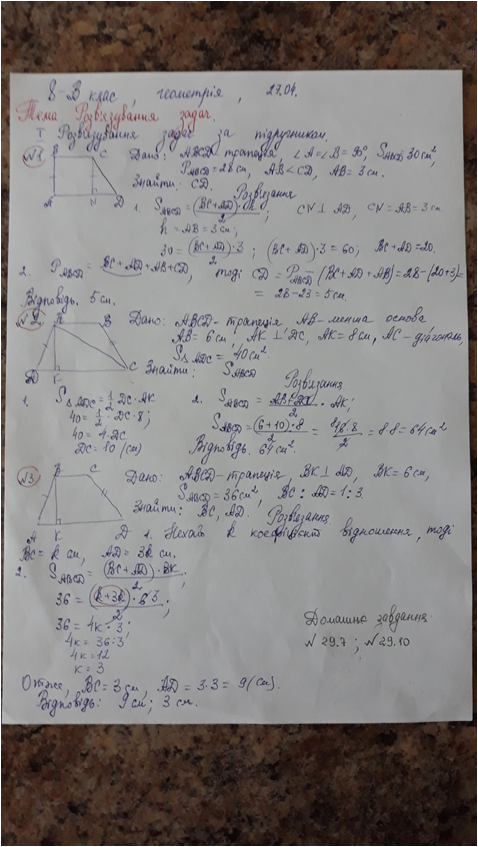 8-В клас, геометрія, 27.04.
Тема. Розв'язування задач.
I Розв'язування задач за підручником.
№1 B C Дано: ABCD-трапеція, ∠A=∠B=90°, S_ABCD 30см²,
P_ABCD=28см, AB<CD, AB=3см.
Знайти: CD.
A N D Розв'язання
1. S_ABCD=(BC+AD)·h/2; CN⊥AD, CN=AB=3см
h=AB=3см;
30=(BC+AD)·3/2; (BC+AD)·3=60; BC+AD=20.
2. P_ABCD=BC+AD+AB+CD, тоді CD=P_ABCD-(BC+AD+AB)=28-(20+3)=
=28-23=5см.
Відповідь. 5см.
№2 B Дано: ABCD-трапеція AB-менша основа
AB=6см, AK⊥DC, AK=8см, AC-діагональ,
S△ADC=40см².
D K C Знайти: S_ABCD
Розв'язання
1. S△ADC=1/2·DC·AK 2. S_ABCD=AB+DC/2·AK;
40=1/2·DC·8; S_ABCD=(6+10)·8/2=16·8/2=8·8=64см²
40=4·DC Відповідь. 64см².
DC=10(см)
№3 B C Дано: ABCD-трапеція, BK⊥AD, BK=6см,
S_ABCD=36см², BC:AD=1:3.
Знайти: BC, AD. Розв'язання
A K D 1. Нехай k коефіцієнт відношення, тоді
BC=k см, AD=3k см.
2. S_ABCD=(BC+AD)·BK/2;
36=(k+3k)·6 3/2;
36=4k·3;
4k=36:3
4k=12
k=3
Домашнє завдання
№29.7; №29.10
Отже, BC=3см, AD=3·3=9(см).
Відповідь: 9см; 3см.